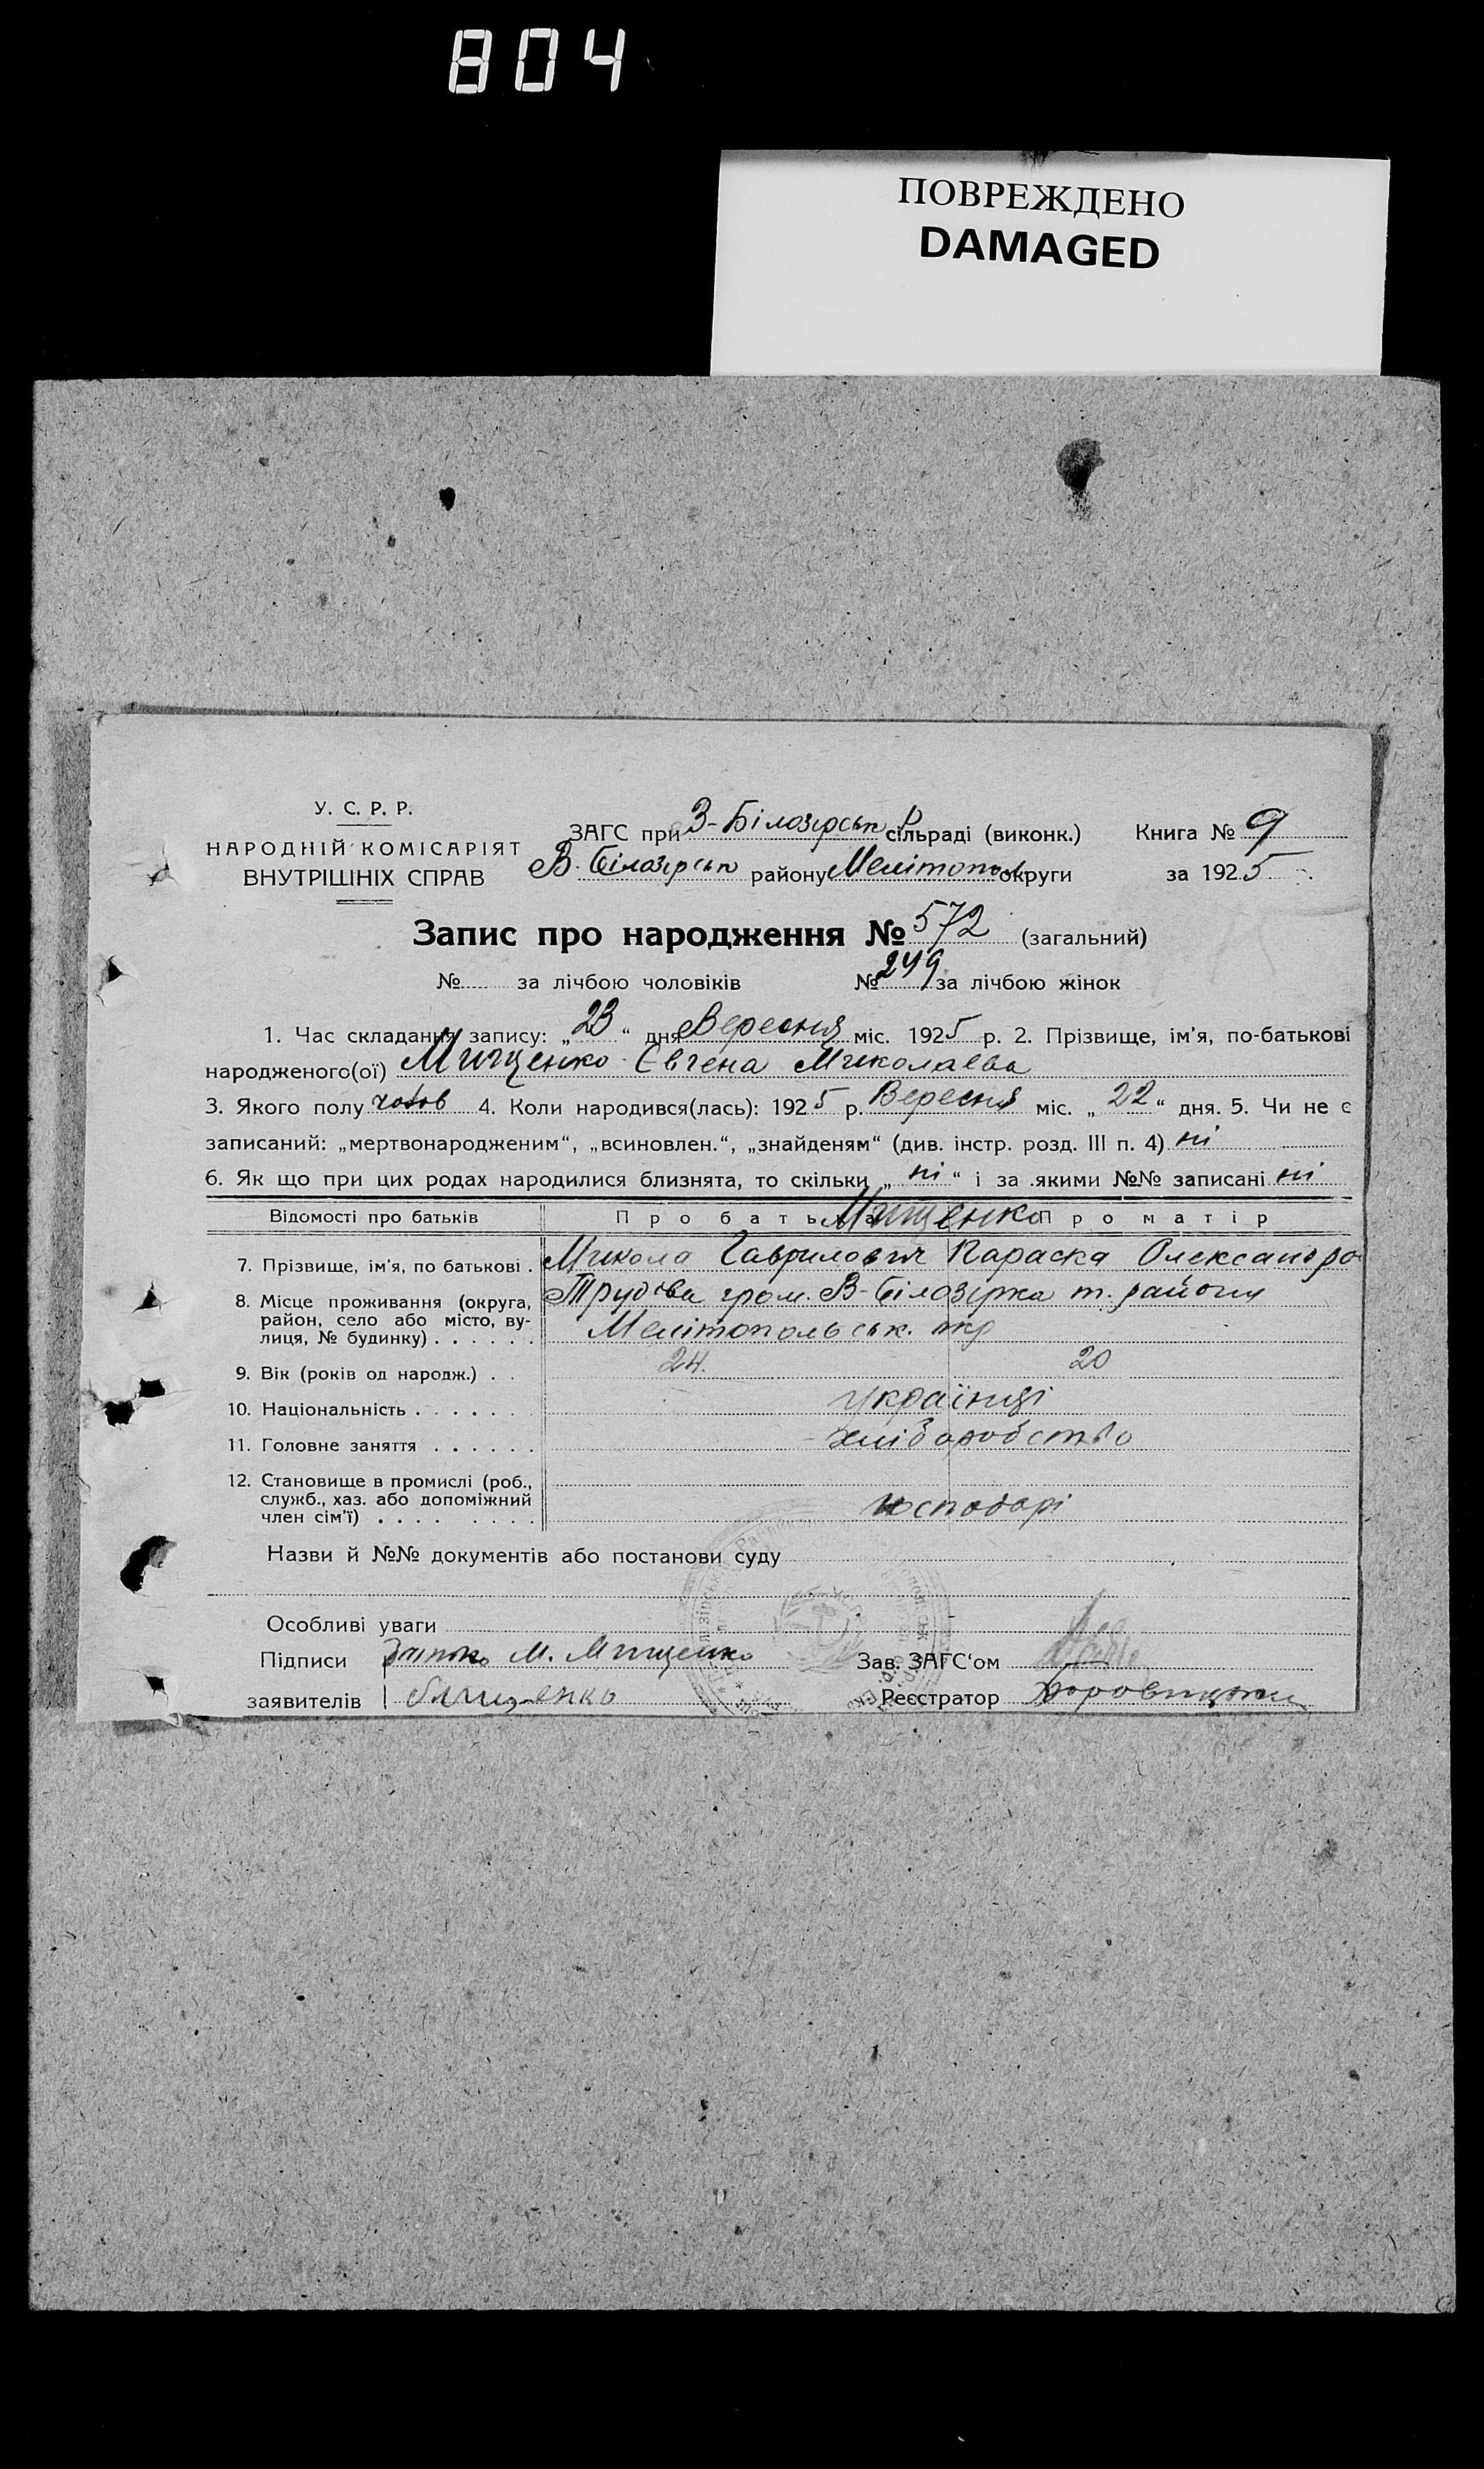 804
ПОВРЕЖДЕНО
DAMAGED
У. С. Р. Р.
НАРОДНІЙ КОМІСАРІЯТ
ВНУТРІШНІХ СПРАВ
ЗАГС при З-Білозірськ сільраді (виконк.) Книга № 9
В. Білозірськ району Мелітопол округи за 1925
Запис про народження № 572 (загальний)
№ за лічбою чоловіків № 249 за лічбою жінок
1. Час складання запису: „23“ дня Вересня міс. 1925 р. 2. Прізвище, ім'я, по-батькові
народженого(ої) Мищенко Євгена Миколаева
3. Якого полу 4. Коли народився(лась): 1925 р. Вересня міс. „22“ дня. 5. Чи не є
записаний: „мертвонародженим“, „всиновлен.“, „знайденям“ (див. інстр. розд. III п. 4) ні
6. Як що при цих родах народилися близнята, то скільки „ні“ і за якими №№ записані ні
Відомості про батьків Про батька Мищенко Про матір
7. Прізвище, ім'я, по батькові . Микола Гаврилович Параска Олександро
8. Місце проживання (округа, Трудова гром. В-Білозірка т. району
район, село або місто, ву-
лиця, № будинку) . . . . . . Мелітопольськ. окр
9. Вік (років од народж.) . . 24. 20
10. Національність . . . . . . . Українці
11. Головне заняття . . . . . . хліборобство
12. Становище в промислі (роб.,
служб., хаз. або допоміжний
член сім'ї) . . . . . . . . господарі
Назви й №№ документів або постанови суду
Особливі уваги
Підписи батько М. Мищенко Зав. ЗАГС'ом
заявителів Мищенко Реєстратор